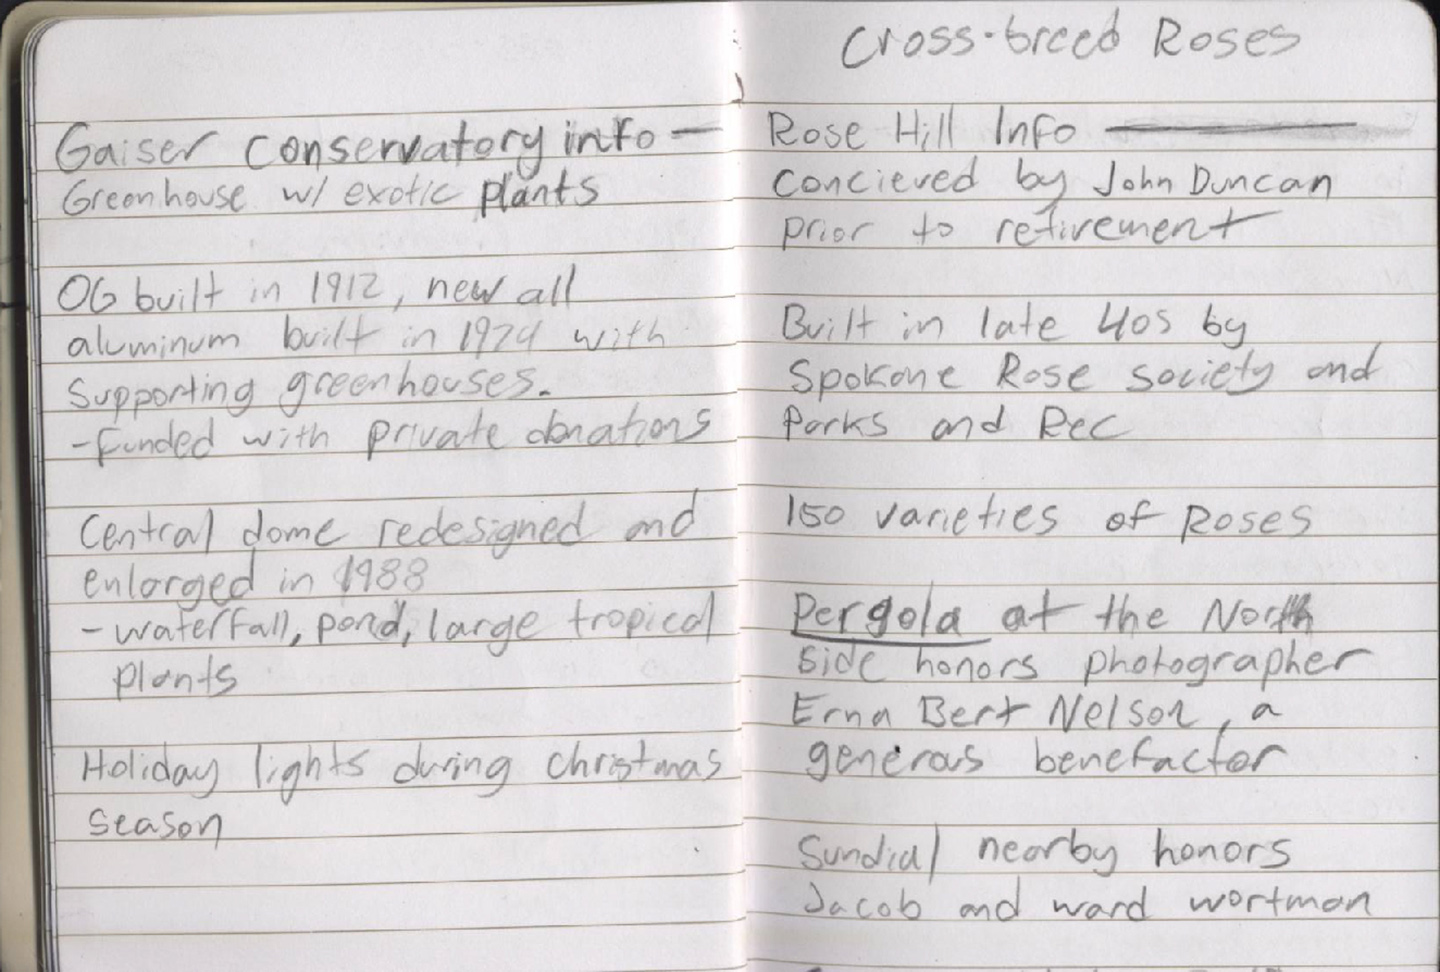 Gaiser Conservatory info —
Greenhouse w/ exotic plants
OG built in 1912, new all
aluminum built in 1974 with
Supporting greenhouses.
- Funded with private donations
Central dome redesigned and
enlarged in 1988
- waterfall, pond, large tropical
plants
Holiday lights during christmas
season
Cross-breed Roses
Rose Hill Info —
Concieved by John Duncan
prior to retirement
Built in late 40s by
Spokane Rose society and
Parks and Rec
150 varieties of Roses
Pergola at the North
side honors photographer
Erna Bert Nelson, a
generous benefactor
Sundial nearby honors
Jacob and ward wortman